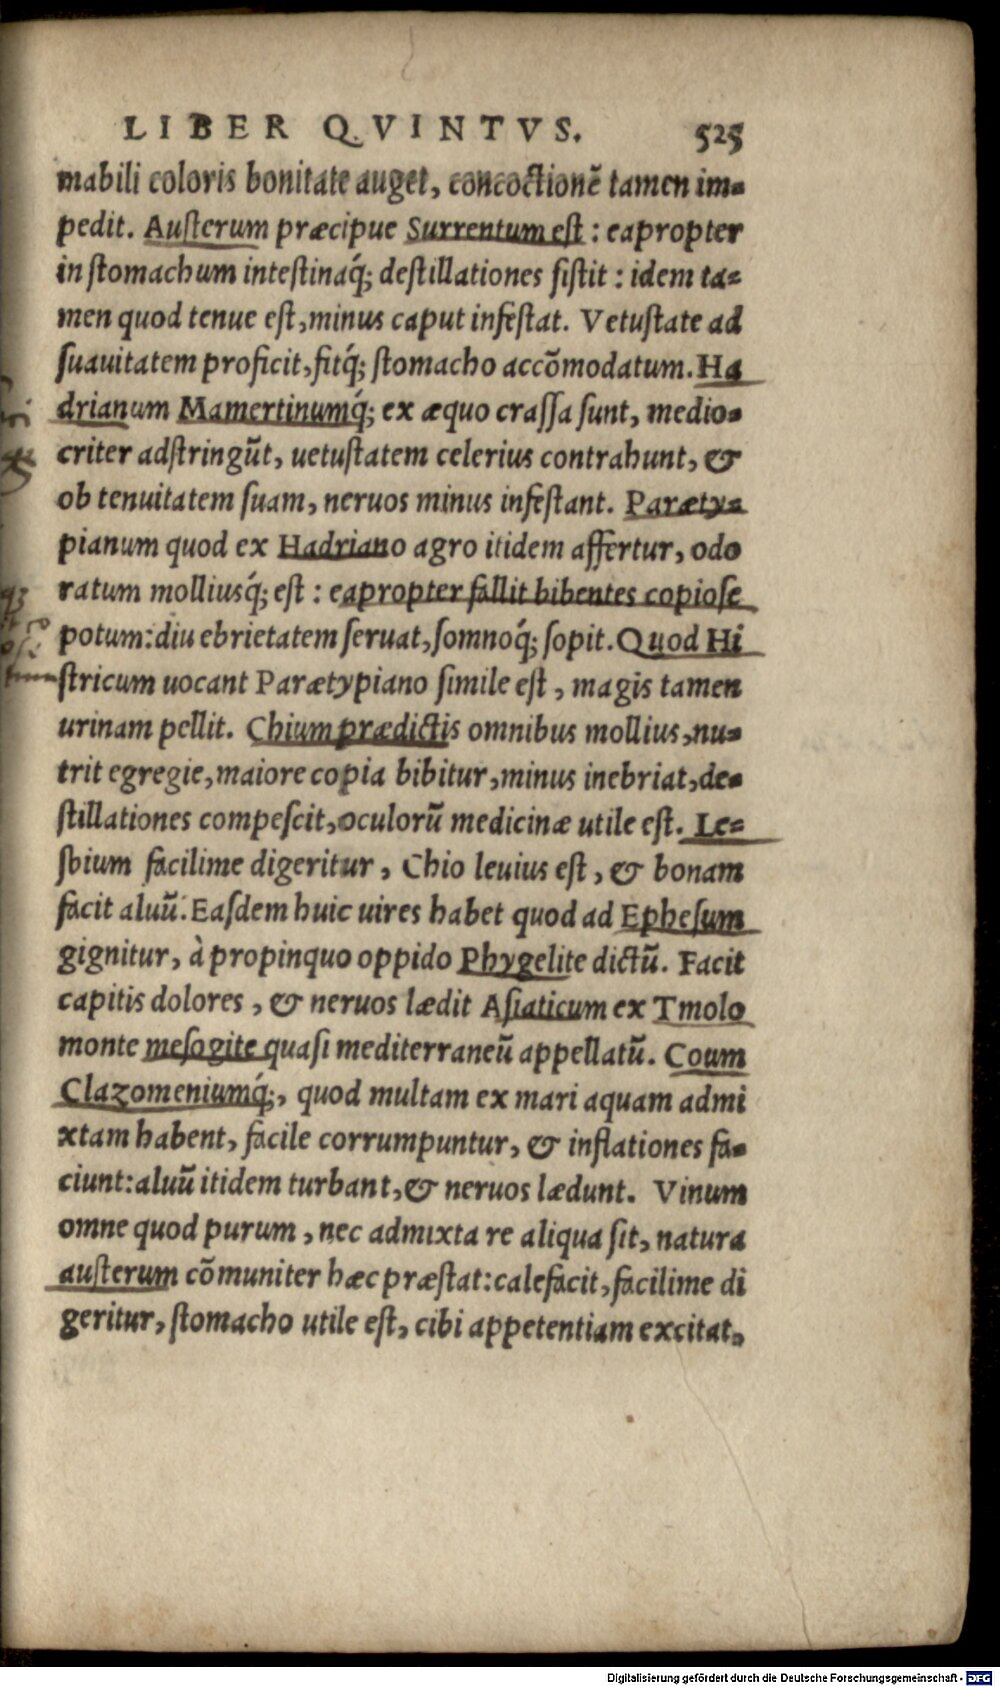 LIBER QVINTVS. 525
mabili coloris bonitate auget, concoctionē tamen im-
pedit. Austerum præcipue Surrentum est : eapropter
in stomachum intestinaq́; destillationes sistit : idem ta-
men quod tenue est, minus caput infestat. Vetustate ad
suauitatem proficit, fitq́; stomacho accōmodatum. Ha
drianum Mamertinumq́; ex æquo crassa sunt, medio-
criter adstringūt, uetustatem celerius contrahunt, &
ob tenuitatem suam, neruos minus infestant. Paræty-
pianum quod ex Hadriano agro itidem affertur, odo
ratum molliusq́; est : eapropter fallit bibentes copiose
potum: diu ebrietatem seruat, somnoq́; sopit. Quod Hi
stricum uocant Parætypiano simile est, magis tamen
urinam pellit. Chium prædictis omnibus mollius, nu-
trit egregie, maiore copia bibitur, minus inebriat, de-
stillationes compescit, oculorū medicinæ utile est. Le-
sbium facilime digeritur, Chio leuius est, & bonam
facit aluū. Easdem huic uires habet quod ad Ephesum
gignitur, à propinquo oppido Phygelite dictū. Facit
capitis dolores, & neruos lædit Asiaticum ex Tmolo
monte mesogite quasi mediterraneū appellatū. Coum
Clazomeniumq́;, quod multam ex mari aquam admi
xtam habent, facile corrumpuntur, & inflationes fa-
ciunt: aluū itidem turbant, & neruos lædunt. Vinum
omne quod purum, nec admixta re aliqua sit, natura
austerum cōmuniter hæc præstat: calefacit, facilime di
geritur, stomacho utile est, cibi appetentiam excitat,
Digitalisierung gefördert durch die Deutsche Forschungsgemeinschaft - DFG